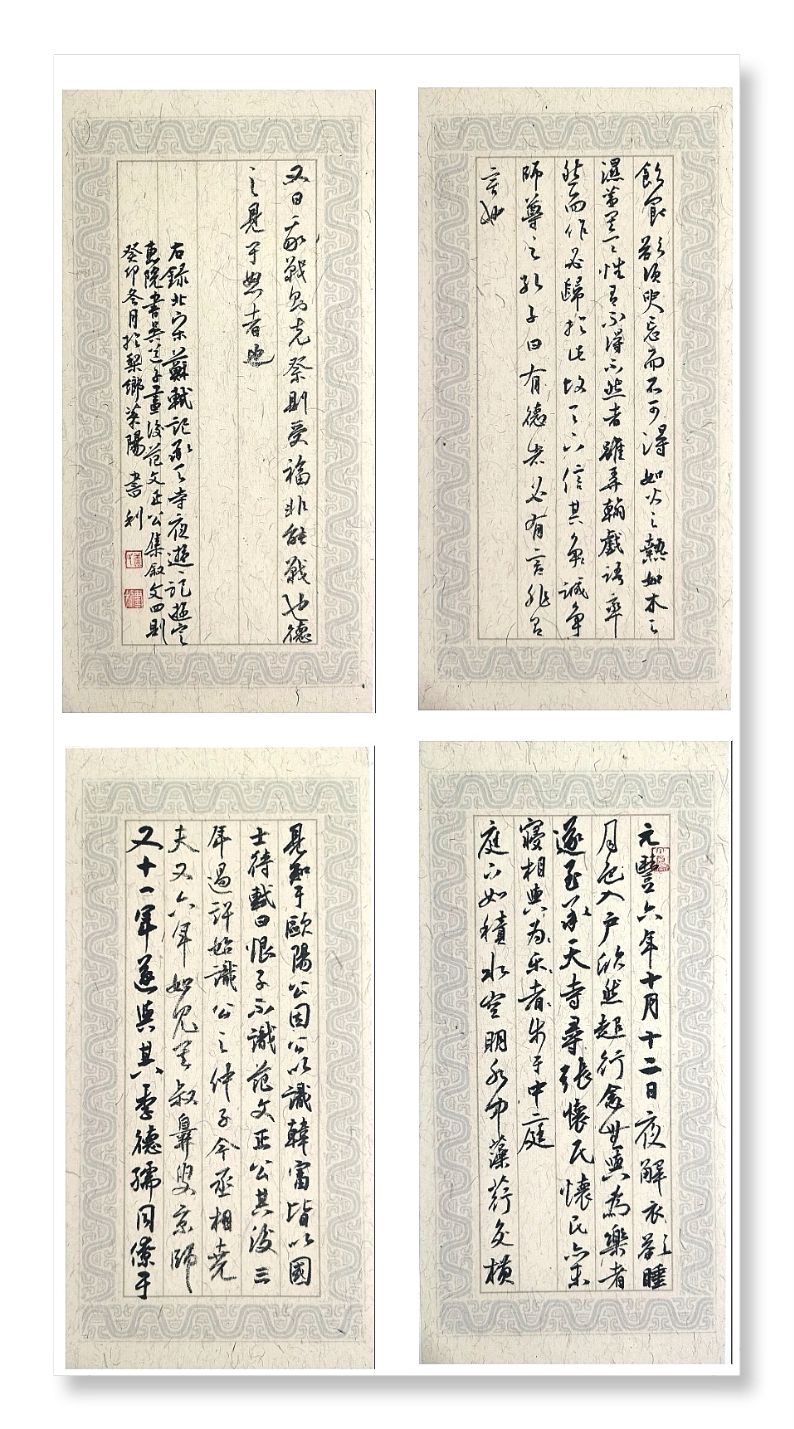 飲食欲須臾忘而不可得如火之熱如水之
濕蓋其天性有不得不然者雖弄翰戲語率
然而作必歸於此故天下信其争誠争
師尊之孔子曰有德者必有言非有
言也
又曰我戰則克祭則受福非能戰也德
之見于怒者也
右錄北宋蘇軾記承天寺夜遊記遊定
惠院書吳道子畫後范文正公集叙文四則
癸卯冬月於梨鄉萊陽 書利
元豐六年十月十二日夜解衣欲睡
月色入户欣然起行念無與為樂者
遂至承天寺尋張懷民懷民亦未
寢相與為乐者步于中庭
庭下如積水空明水中藻荇交橫
見知于歐陽公因公以識韓富皆以國
士待軾曰恨子不識范文正公其後三
年過許始識公之仲子今丞相堯
夫又六年始見其叔彝叟京師
又十一年遂與其季德孺同僚于